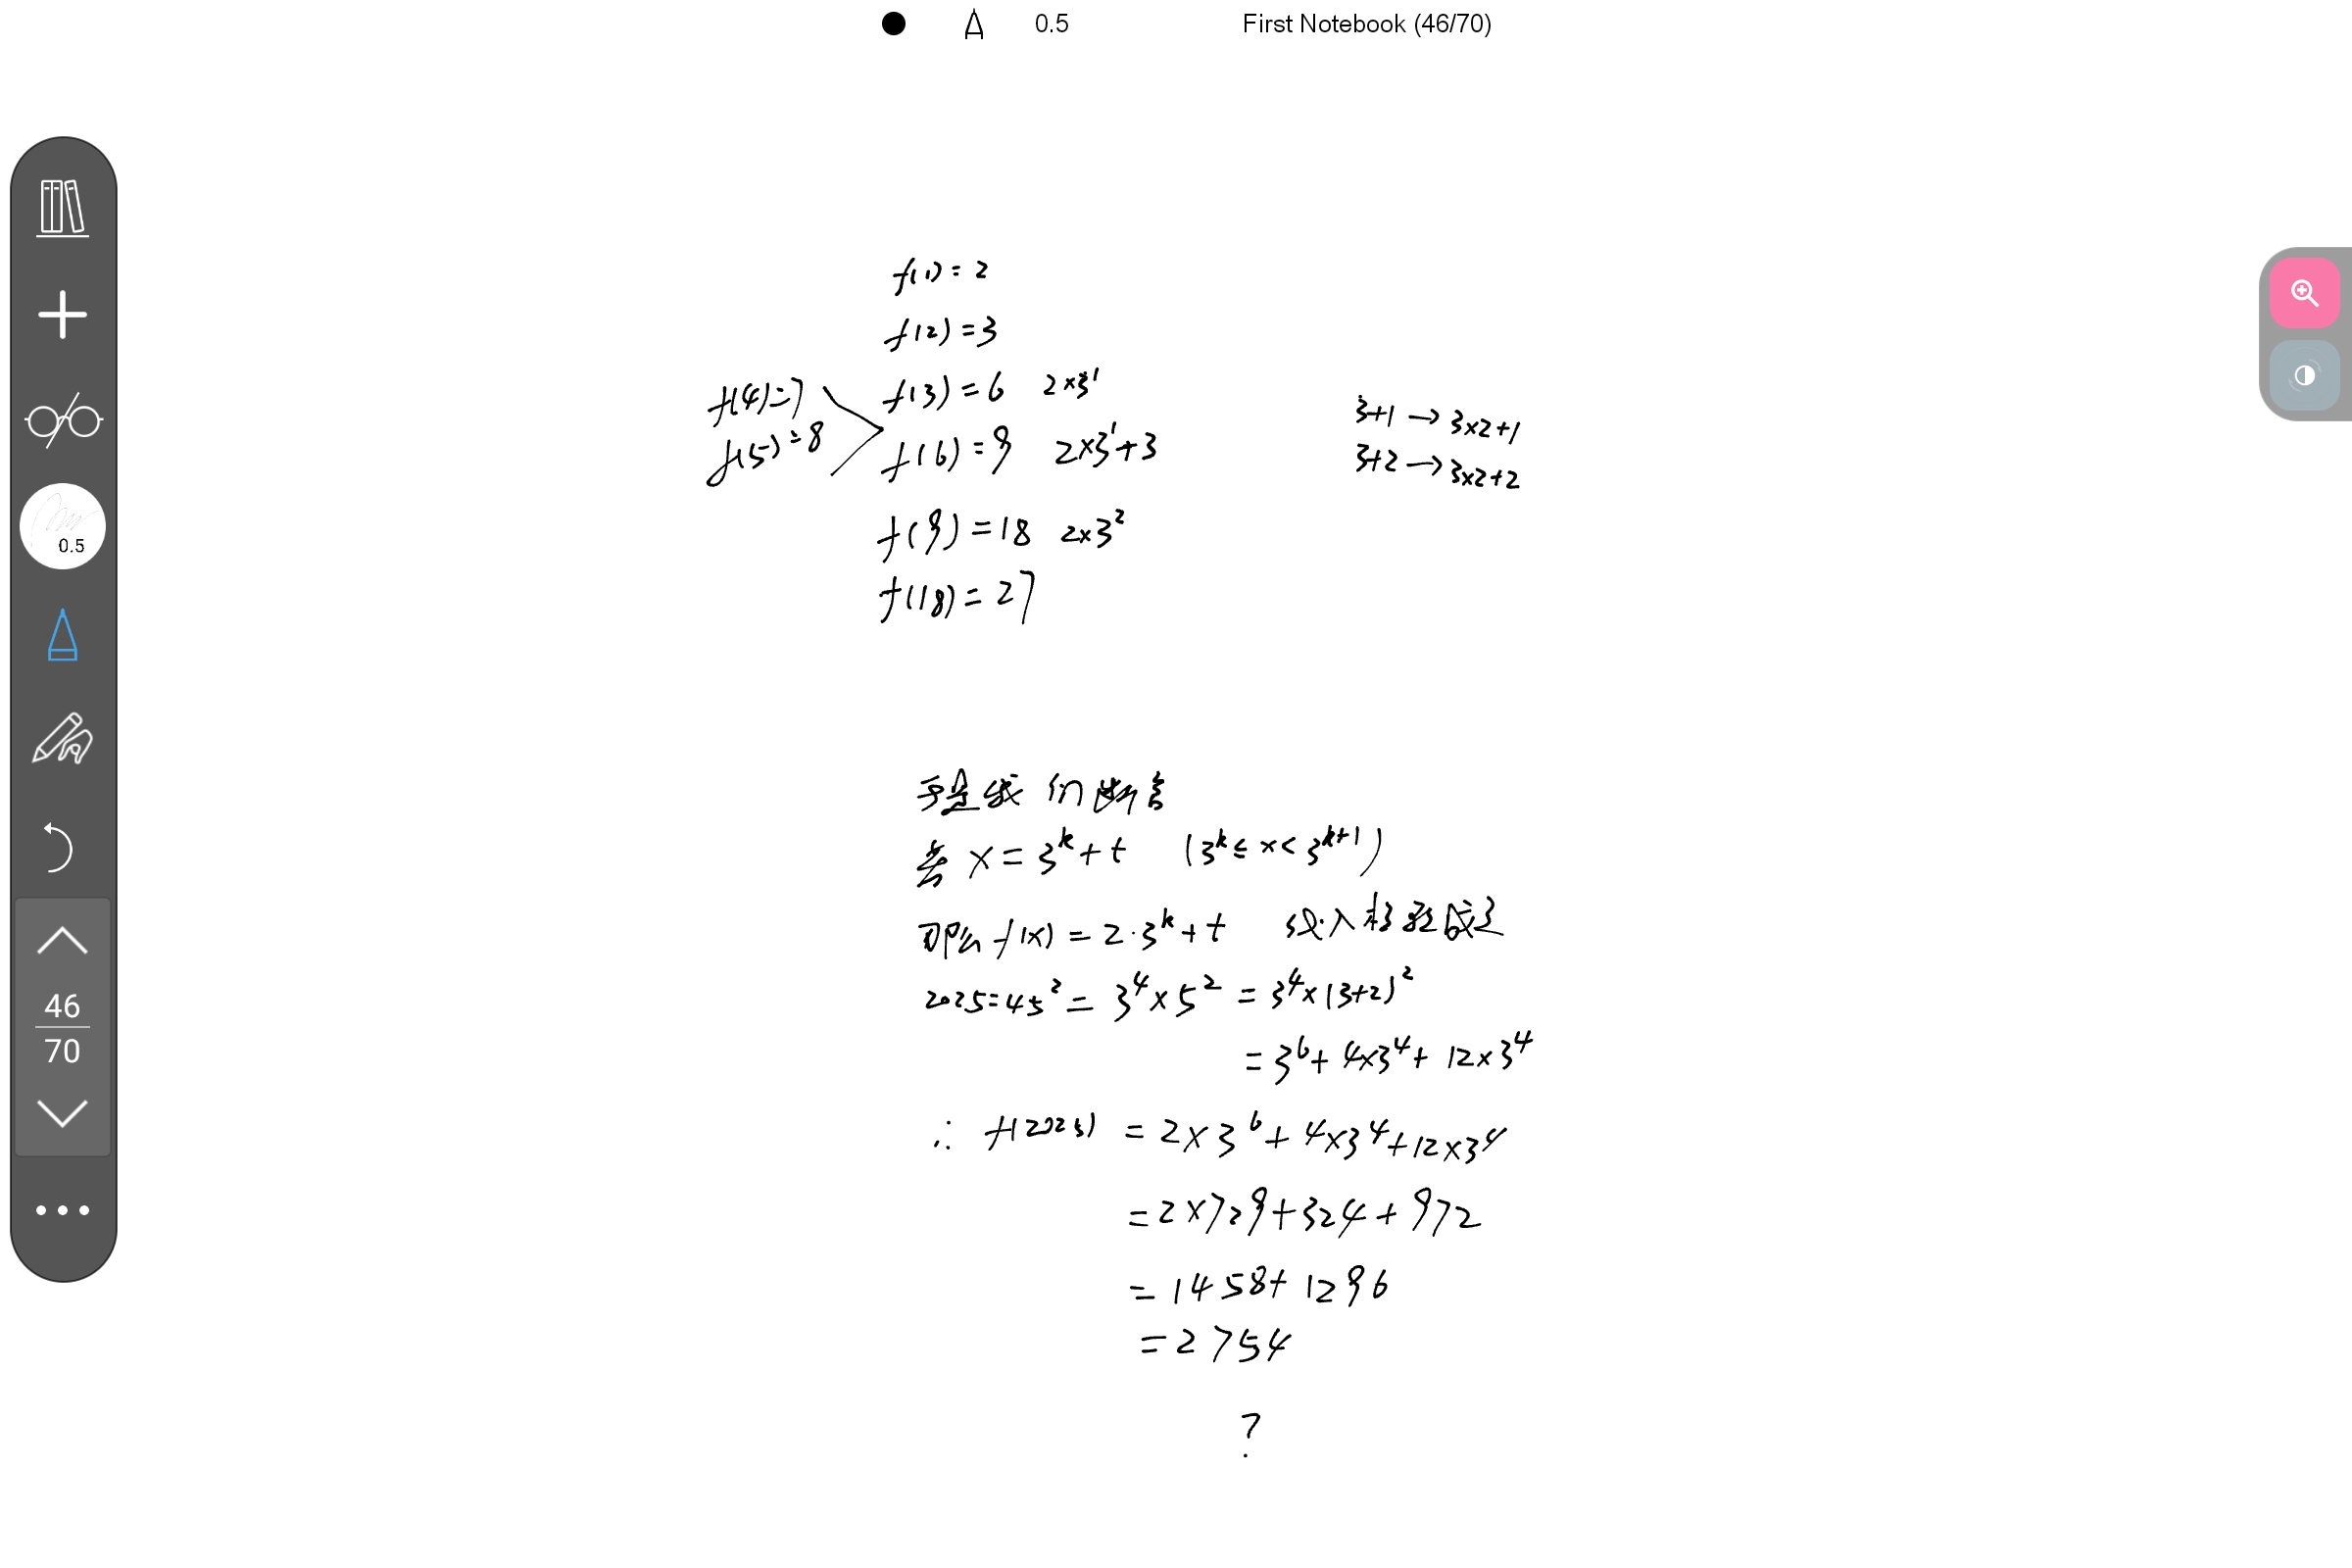 0.5 First Notebook (46/70)
f(1)=2
f(2)=3
f(3)=6 2×3¹
f(4)=7
f(5)=8
f(6)=9 2×3¹+3
f(9)=18 2×3²
f(18)=27
3+1→3×2+1
3+2→3×2+2
0.5
于是我们断言
若 x=3ᵏ+t (3ᵏ≤x<3ᵏ⁺¹)
那么 f(x)=2·3ᵏ+t
2025=45²=3⁴×5²=3⁴×(3+2)²
=3⁶+4×3⁴+12×3⁴
∴ f(2025)=2×3⁶+4×3⁴+12×3⁴
=2×729+324+972
=1458+1296
=2754
?
46
70